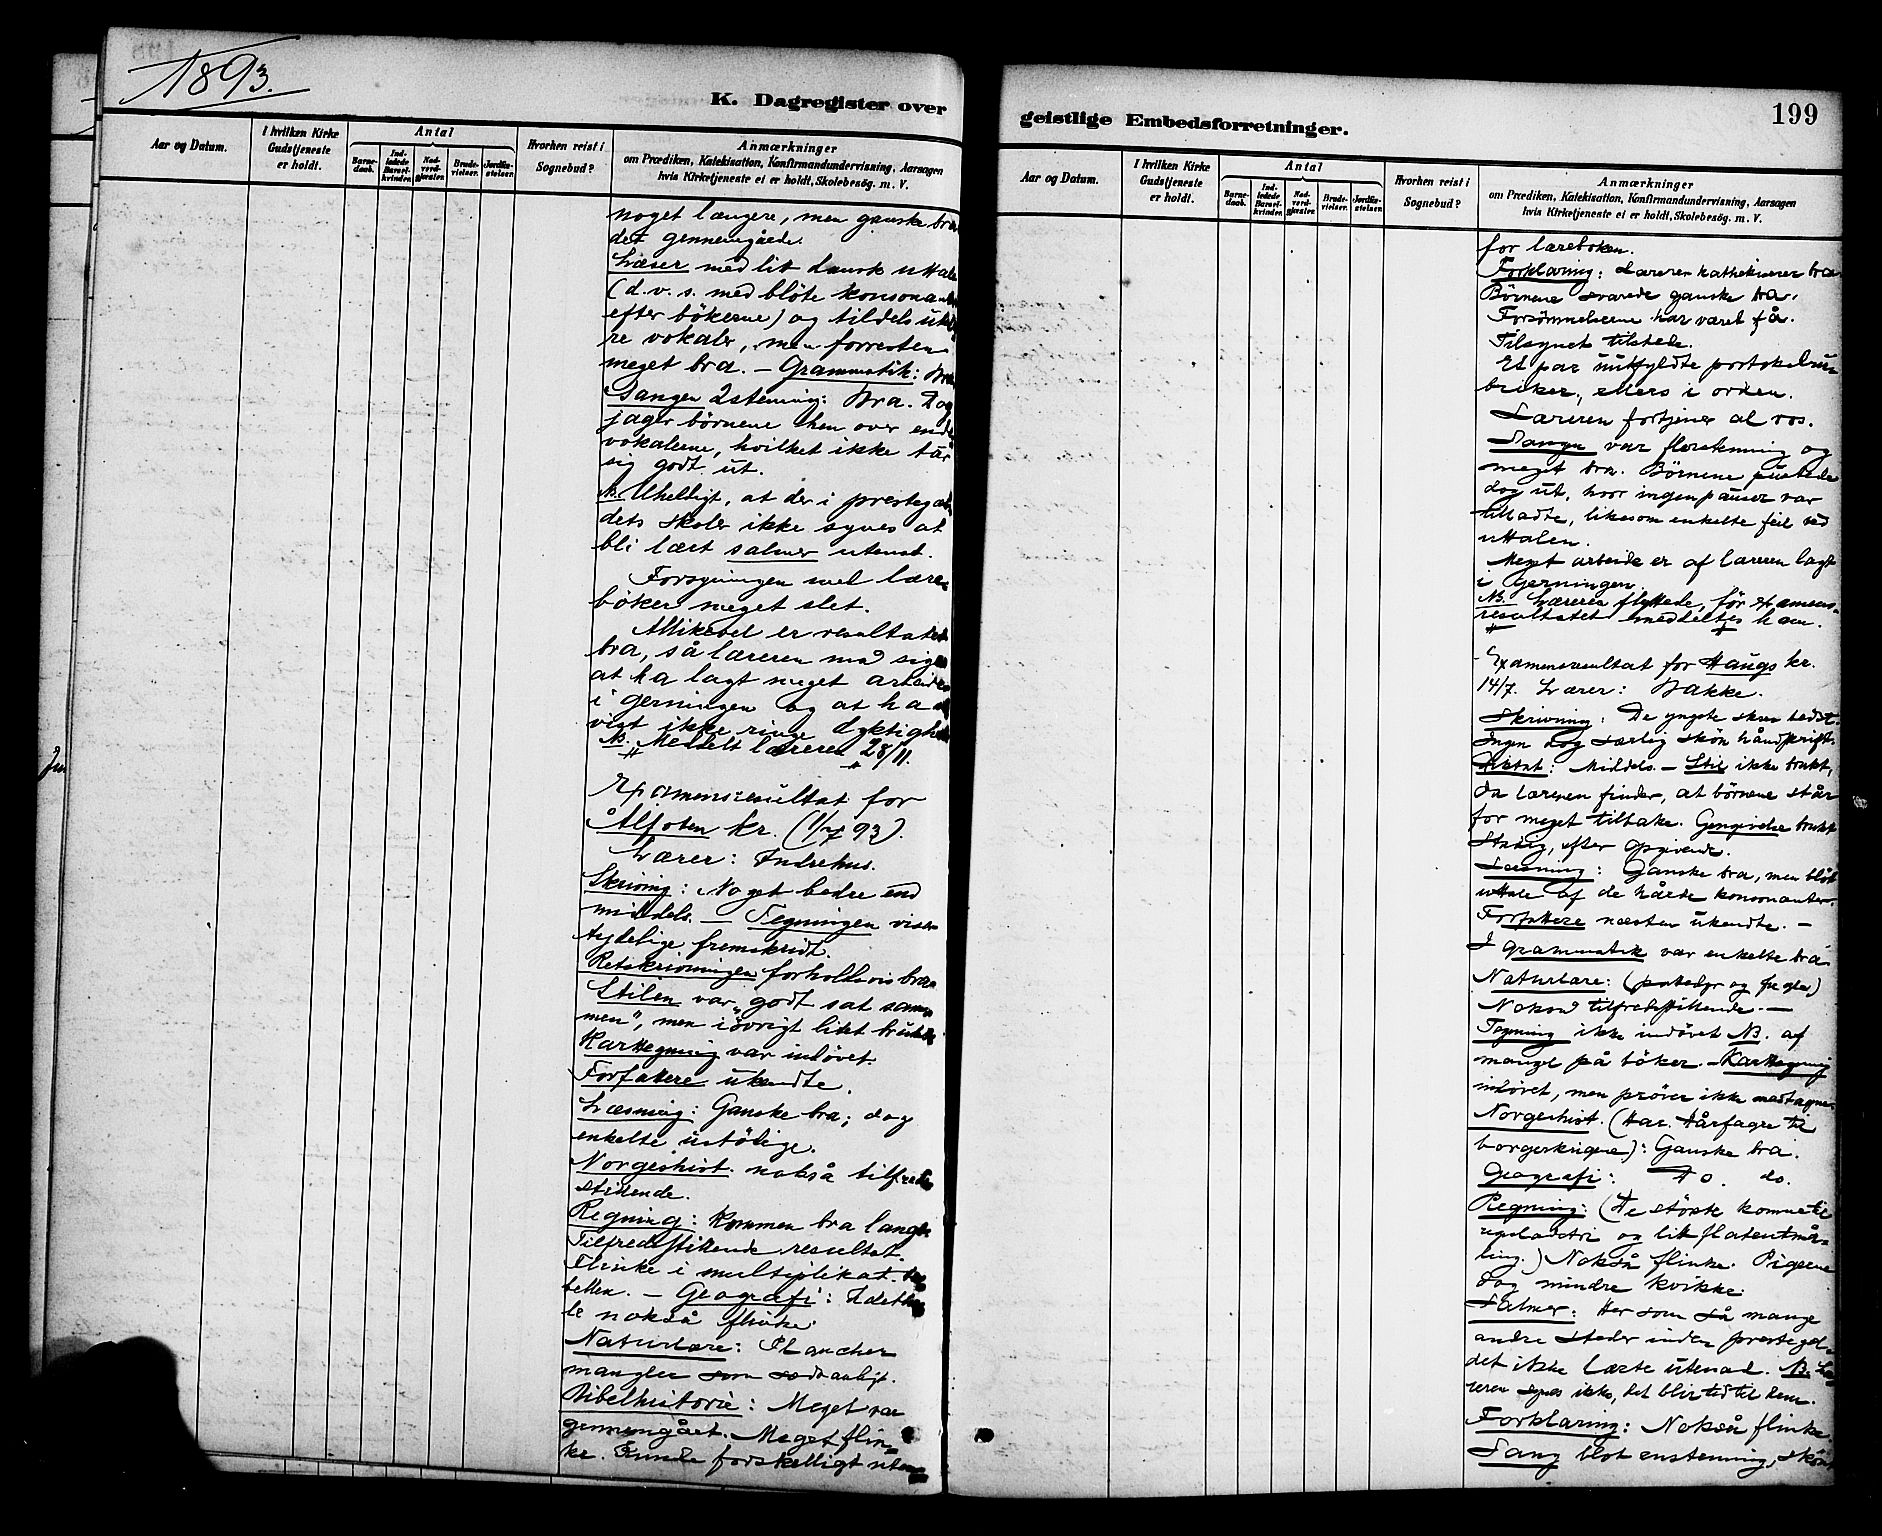 1893.
K. Dagregister over
Aar og Datum.
I hvilken Kirke
Gudstjeneste
er holdt.
Antal
Barne-
daab.
Ind-
ledede
Barsel-
kvinder.
Nad-
verd-
gjæster.
Brude-
vielser.
Jordfæs-
stelser.
Hvorhen reist i
Sognebud?
Anmærkninger
om Prædiken, Katekisation, Konfirmandundervisning, Aarsagen
hvis Kirketjeneste ei er holdt, Skolebesög. m. V.
noget længere, men ganske bra
det gennemgåede.
Læser med lit dansk uttale
(d.v.s. med blöte konsonanter
efter bökerne) og tildels
re vokaler, men forresten
meget bra. – Grammatik: Bra
Sangen 2stemmig: Bra. Dog
jager börnene hen over ende
vokalerne, hvilket ikke tar
sig godt ut.
NB. Uheldigt, at der i prestegæl-
dets skoler ikke synes at
bli lært salmer utenat.
Forsyningen med lære
böker meget slet.
Allikevel er resultatet
bra, så læreren må siges
at ha lagt meget arbeide
i gerningen og at ha
vist ikke ringe dyktighet
NB. Meddelt læreren 28/11.
Examensresultat for
Ålfoten kr. (1/7 93).
Lærer: Indrehus.
Skrivnig: Noget bedre end
middels. – Tegningen viser
tydelige fremskridt.
Retskrivningen forholdsvis bra
Stilen var „godt sat sam-
men", men iövrigt litet
Karttegning var indövet.
Forfattere ukendte.
Læsning: Ganske bra; dog
enkelte ustölige.
Norgeshist. nokså tilfreds
stillende.
Regning: Kommen bra langt
Tilfredsstillende resultat.
Flinke i multiplikat. ta-
bellen. – Geografi: I det he
le nokså flinke.
Naturlære: Plancher
mangler som sedvanligt.
Bibelhistorie: Meget var
gennemgået. Meget flin-
ke. Kunde forskelligt uten
geistlige Embedsforretninger.
199
Aar og Datum.
I hvilken Kirke
Gudstjeneste
er holdt.
Antal
Barne-
daab.
Ind-
ledede
Barsel-
kvinder.
Nad-
verd-
gjæster.
Brude-
vielser.
Jordfæs-
stelser.
Hvorhen reist i
Sognebud?
Anmærkninger
om Prædiken, Katekisation, Konfirmandundervisning, Aarsagen
hvis Kirketjeneste ei er holdt, Skolebesög. m. V.
for læreboken.
Forklaring: Læreren kathekiserer bra
Börnene svarede ganske bra.
Forsömmelserne har været få.
Tilsynet tilstede.
Et par uutfyldte protokolru-
briker, ellers i orden.
Læreren fortjener al ros.
Sangen var flerstemmig og
meget bra. Börnene pustede
dog ut, hvor ingen pauser var
tilladte, likesom enkelte feil ved
uttalen.
Meget arbeide er af læreren lagt
i gerningen.
NB. Læreren flyttede, för examens-
resultatet meddeltes ham.
Examensresultat for Haugs kr.
14/7. Lærer: Bakke.
Skrivning: De yngste skrev bedst.
Ingen dog særlig skön håndskrift.
Diktat: Middels. – Stil ikke brukt,
da læreren finder, at börnene står
for meget tilbake. Gengivelse brukt
stadig, efter opgivende.
Læsning: Ganske bra, men blöt
uttale af de hårde konsonanter.
Forfattere næsten ukendte. –
I grammatik var enkelte bra
Naturlære: (pattedyr og fugle)
Nokså tilfredsstillende. –
Tegning ikke indövet NB. af
mangel på böker. – Karttegning
indövet, men pröver ikke medtagne.
Norgeshist. (Har. Hårfagre til
borgerkrigene): Ganske bra.
Geografi: Do. do.
Regning: (De störste komne til
og lit flateutmå-
ling.) Nokså flinke. Pigerne
dog mindre kvikke.
Salmer: Her som så mange
andre steder inden prestegel-
det ikke lærte utenad. NB. Læ-
reren synes ikke, det blir tid til dem.
Forklaring: Nokså flinke.
Sang blot enstemmig,